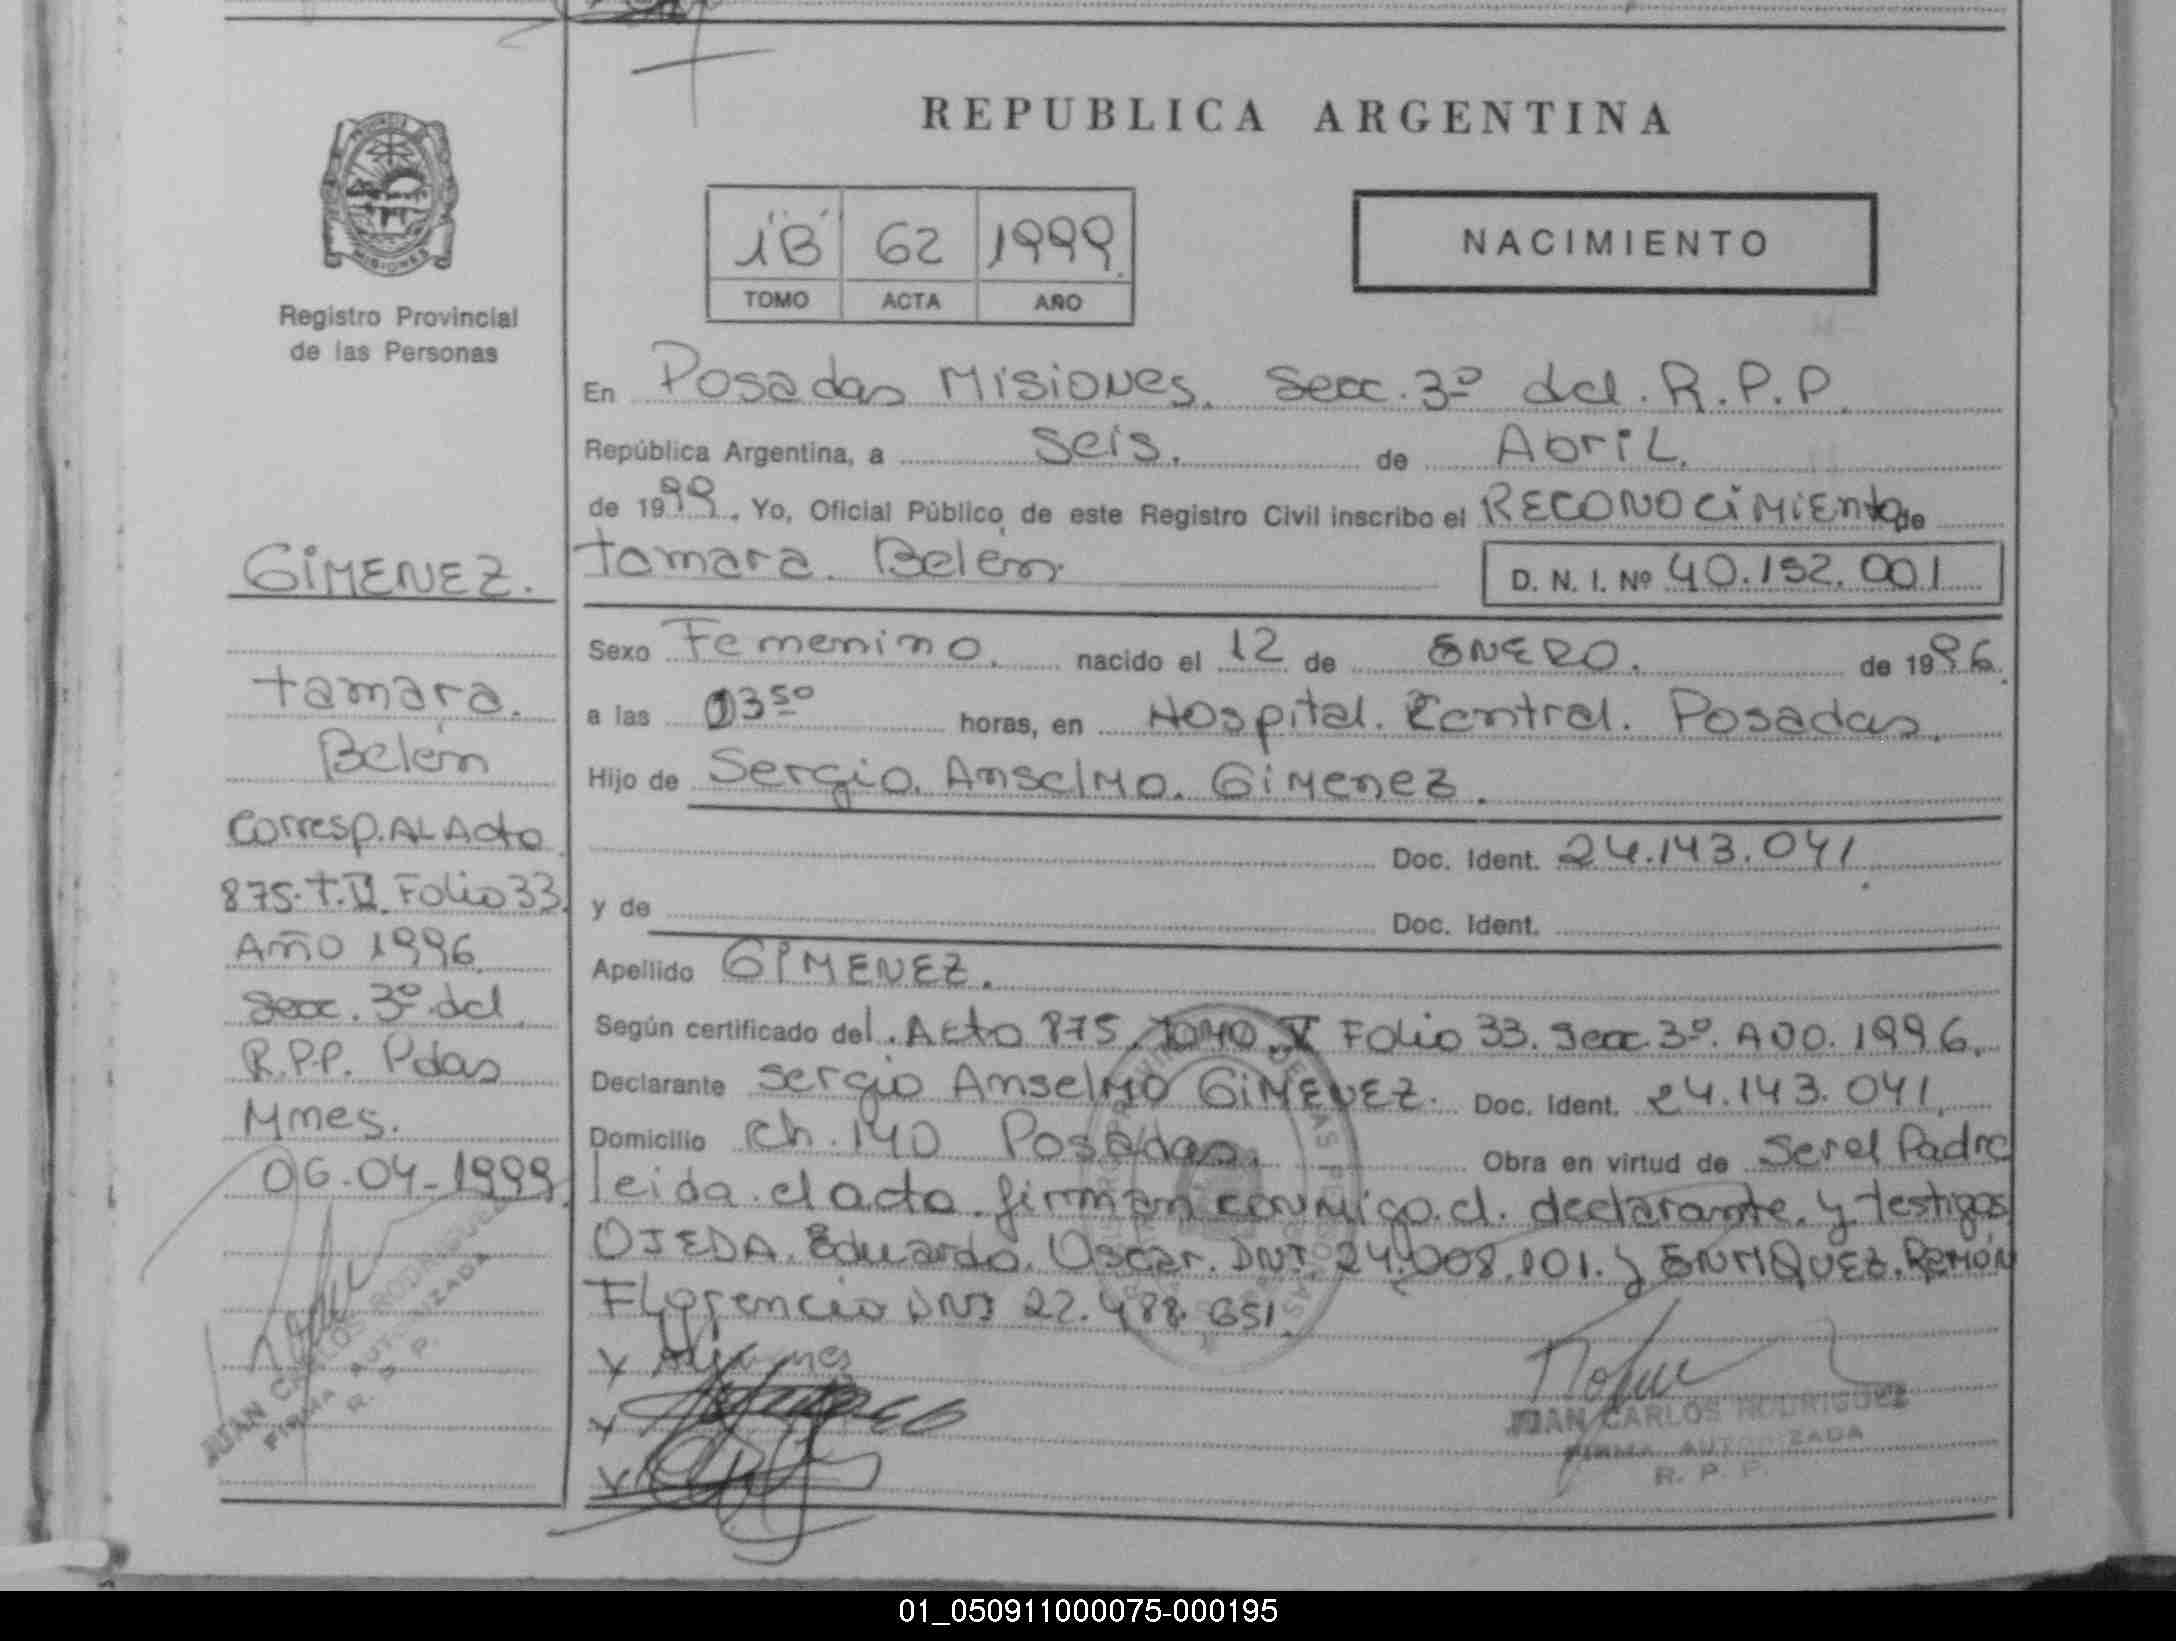 REPUBLICA ARGENTINA
PROVINCIA DE
MISIONES
Registro Provincial
de las Personas
1"B" 62 1999
TOMO ACTA AÑO
NACIMIENTO
En Posadas Misiones. Secc. 3º del. R.P.P.
República Argentina, a Seis. de Abril.
de 1999. Yo, Oficial Público de este Registro Civil inscribo el RECONOCiMiEnto de
tamara. Belém. D. N. I. Nº 40.152.001
Sexo Femenino. nacido el 12 de ENERO. de 1996.
a las 03 50 horas, en Hospital. Central. Posadas.
Hijo de Sergio. Anselmo. Gimenez.
Doc. Ident. 24.143.041
y de Doc. Ident.
Apellido GiMENEZ.
Según certificado del. Acto 875. Tomo. V Folio 33. Secc. 3º. AÑO. 1996.
Declarante Sergio Anselmo GiMENEZ. Doc. Ident. 24.143.041.
Domicilio Ch. 140 Posadas. Obra en virtud de Ser el Padre
leida. el acto. firman conmigo. el. declarante. y testigos
OJEDA. Eduardo. Oscar. DNI 24.008.101. y ENRiQUEZ. Ramón
Florencio DNI 22.488.651.
JUAN CARLOS RODRIGUEZ
FIRMA AUTORIZADA
R. P. P.
GiMENEZ.
tamara.
Belém
Corresp. AL Acto
875. T. V Folio 33
Año 1996
Secc. 3º. del
R.P.P. Pdas
Mnes.
06-04-1999.
JUAN CARLOS RODRIGUEZ
FIRMA AUTORIZADA
R. P. P.
01_050911000075-000195